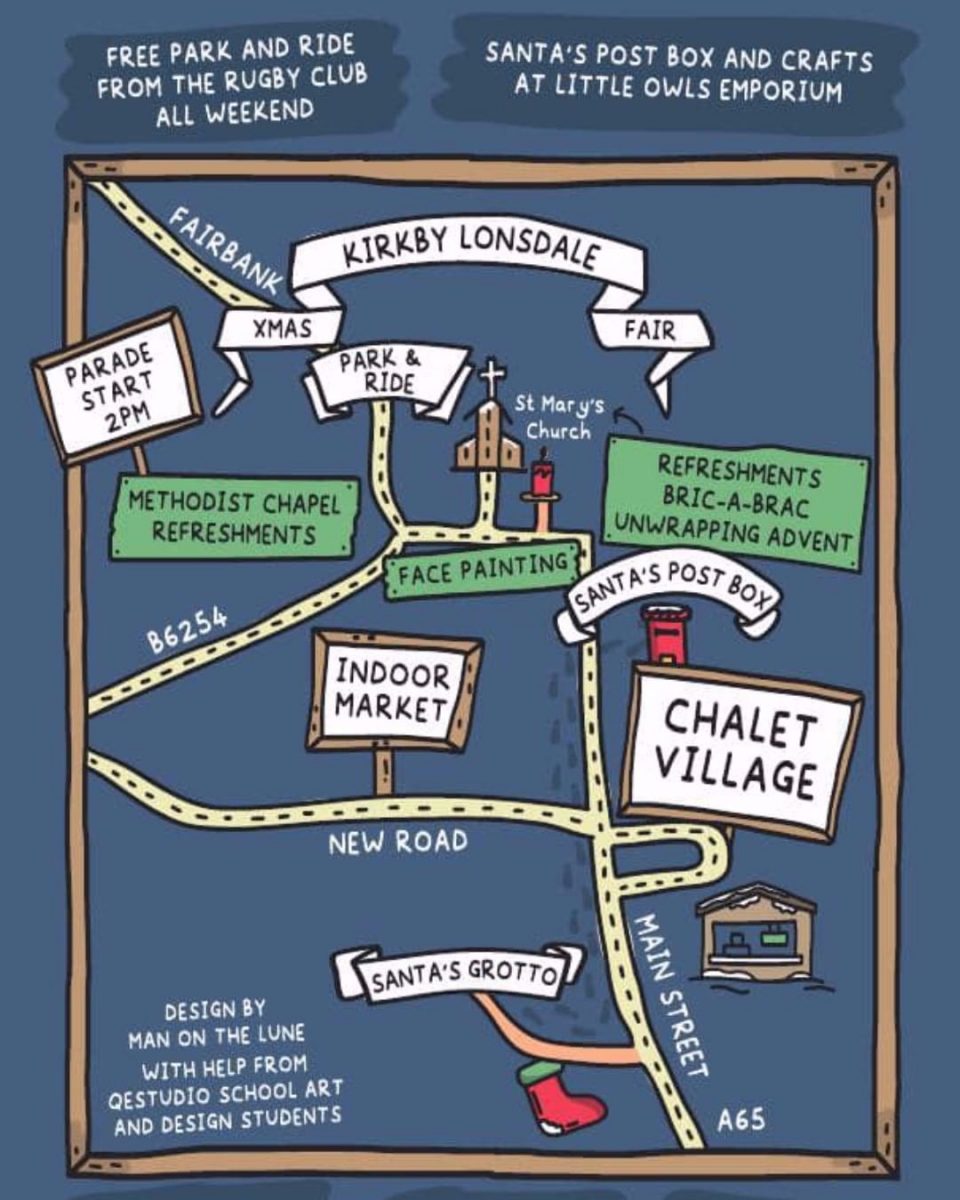 FREE PARK AND RIDE
FROM THE RUGBY CLUB
ALL WEEKEND
SANTA'S POST BOX AND CRAFTS
AT LITTLE OWLS EMPORIUM
FAIRBANK
KIRKBY LONSDALE
XMAS
FAIR
PARADE
START
2PM
PARK &
RIDE
St Mary's
Church
METHODIST CHAPEL
REFRESHMENTS
REFRESHMENTS
BRIC-A-BRAC
UNWRAPPING ADVENT
FACE PAINTING
SANTA'S POST BOX
B6254
INDOOR
MARKET
CHALET
VILLAGE
NEW ROAD
SANTA'S GROTTO
MAIN STREET
DESIGN BY
MAN ON THE LUNE
WITH HELP FROM
QESTUDIO SCHOOL ART
AND DESIGN STUDENTS
A65